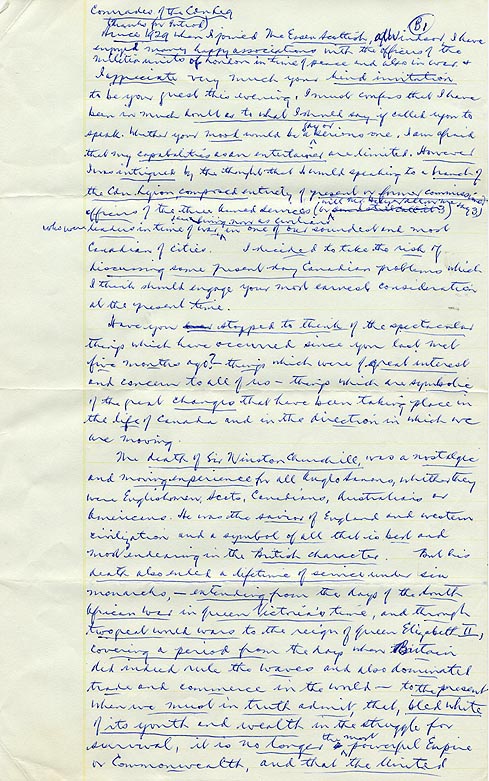 Comrades of the Can Leg
(thanks for Introd)
B1
Since 1929 when I joined The Essex Scottish, at Windsor I have
enjoyed many happy associations with the officers of the
Militia units of London in time of peace and also in war &
I appreciate very much your kind invitation
to be your guest this evening. I must confess that I have
been in much doubt as to what I should say if called upon to
speak. Whether your mood would be a gay or serious one. I am afraid
that my capabilities as an entertainer are limited. However
I was intrigued by the thought that I would speaking to a branch of
the Cdn Legion composed entirely of present or former commissioned
officers of the three armed services
who were leaders in time of war, in one of our soundest and most
Canadian of cities. I decided to take the risk of
discussing some present-day Canadian problems which
I think should engage your most earnest consideration
at the present time.
Have you stopped to think of the spectacular
things which have occurred since you last met
five months ago? - things which were of great interest
and concern to all of us - things which are symbolic
of the great changes that have been taking place in
the life of Canada and in the direction in which we
are moving.
The death of Sir Winston Churchill, was a nostalgic
and moving experience for all Anglo Saxons, whether they
were Englishmen, Scots, Canadians, Australians or
Americans. He was the savior of England and western
civilization and a symbol of all that is best and
most endearing in the British character. But his
death also ended a lifetime of service under six
monarchs, - extending from the days of the South
African war in Queen Victoria's time, and through
two great world wars to the reign of Queen Elizabeth II,
covering a period from the days when Britain
did indeed rule the waves and also dominated
trade and commerce in the world - to the present
when we must in truth admit that, bled white
of its youth and wealth in the struggle for
survival, it is no longer the most powerful Empire
or Commonwealth, and that the United